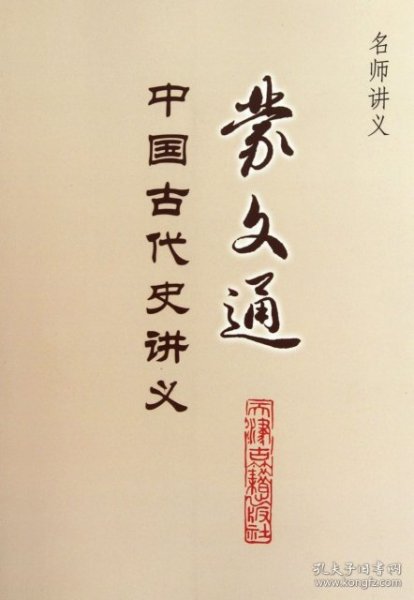 名师讲义
蒙文通
中国古代史讲义
天津古籍出版社
孔夫子旧书网